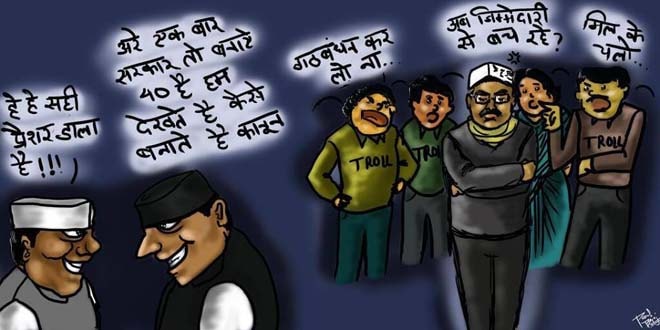 हे हे सही
प्रैशर डाला
है!!!
अरे एक बार
सरकार तो बनाटे
40 है हम
देखते है कैसे
बनाते है कानून
गठबंधन कर
लो ना...
अब जिम्मेदारी
से बच रहे?
मिल के
चलो...
TROLL
TROLL
TROLL